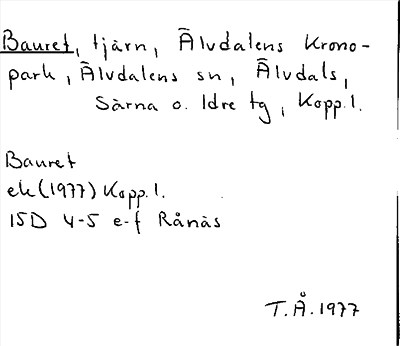 Bauret, tjärn, Älvdalens Krono-
park, Älvdalens sn, Älvdals,
Särna o. Idre tg, Kopp.l.
Bauret
ek (1977) Kopp.l.
15D 4-5 e-f Rånäs
T.Å. 1977